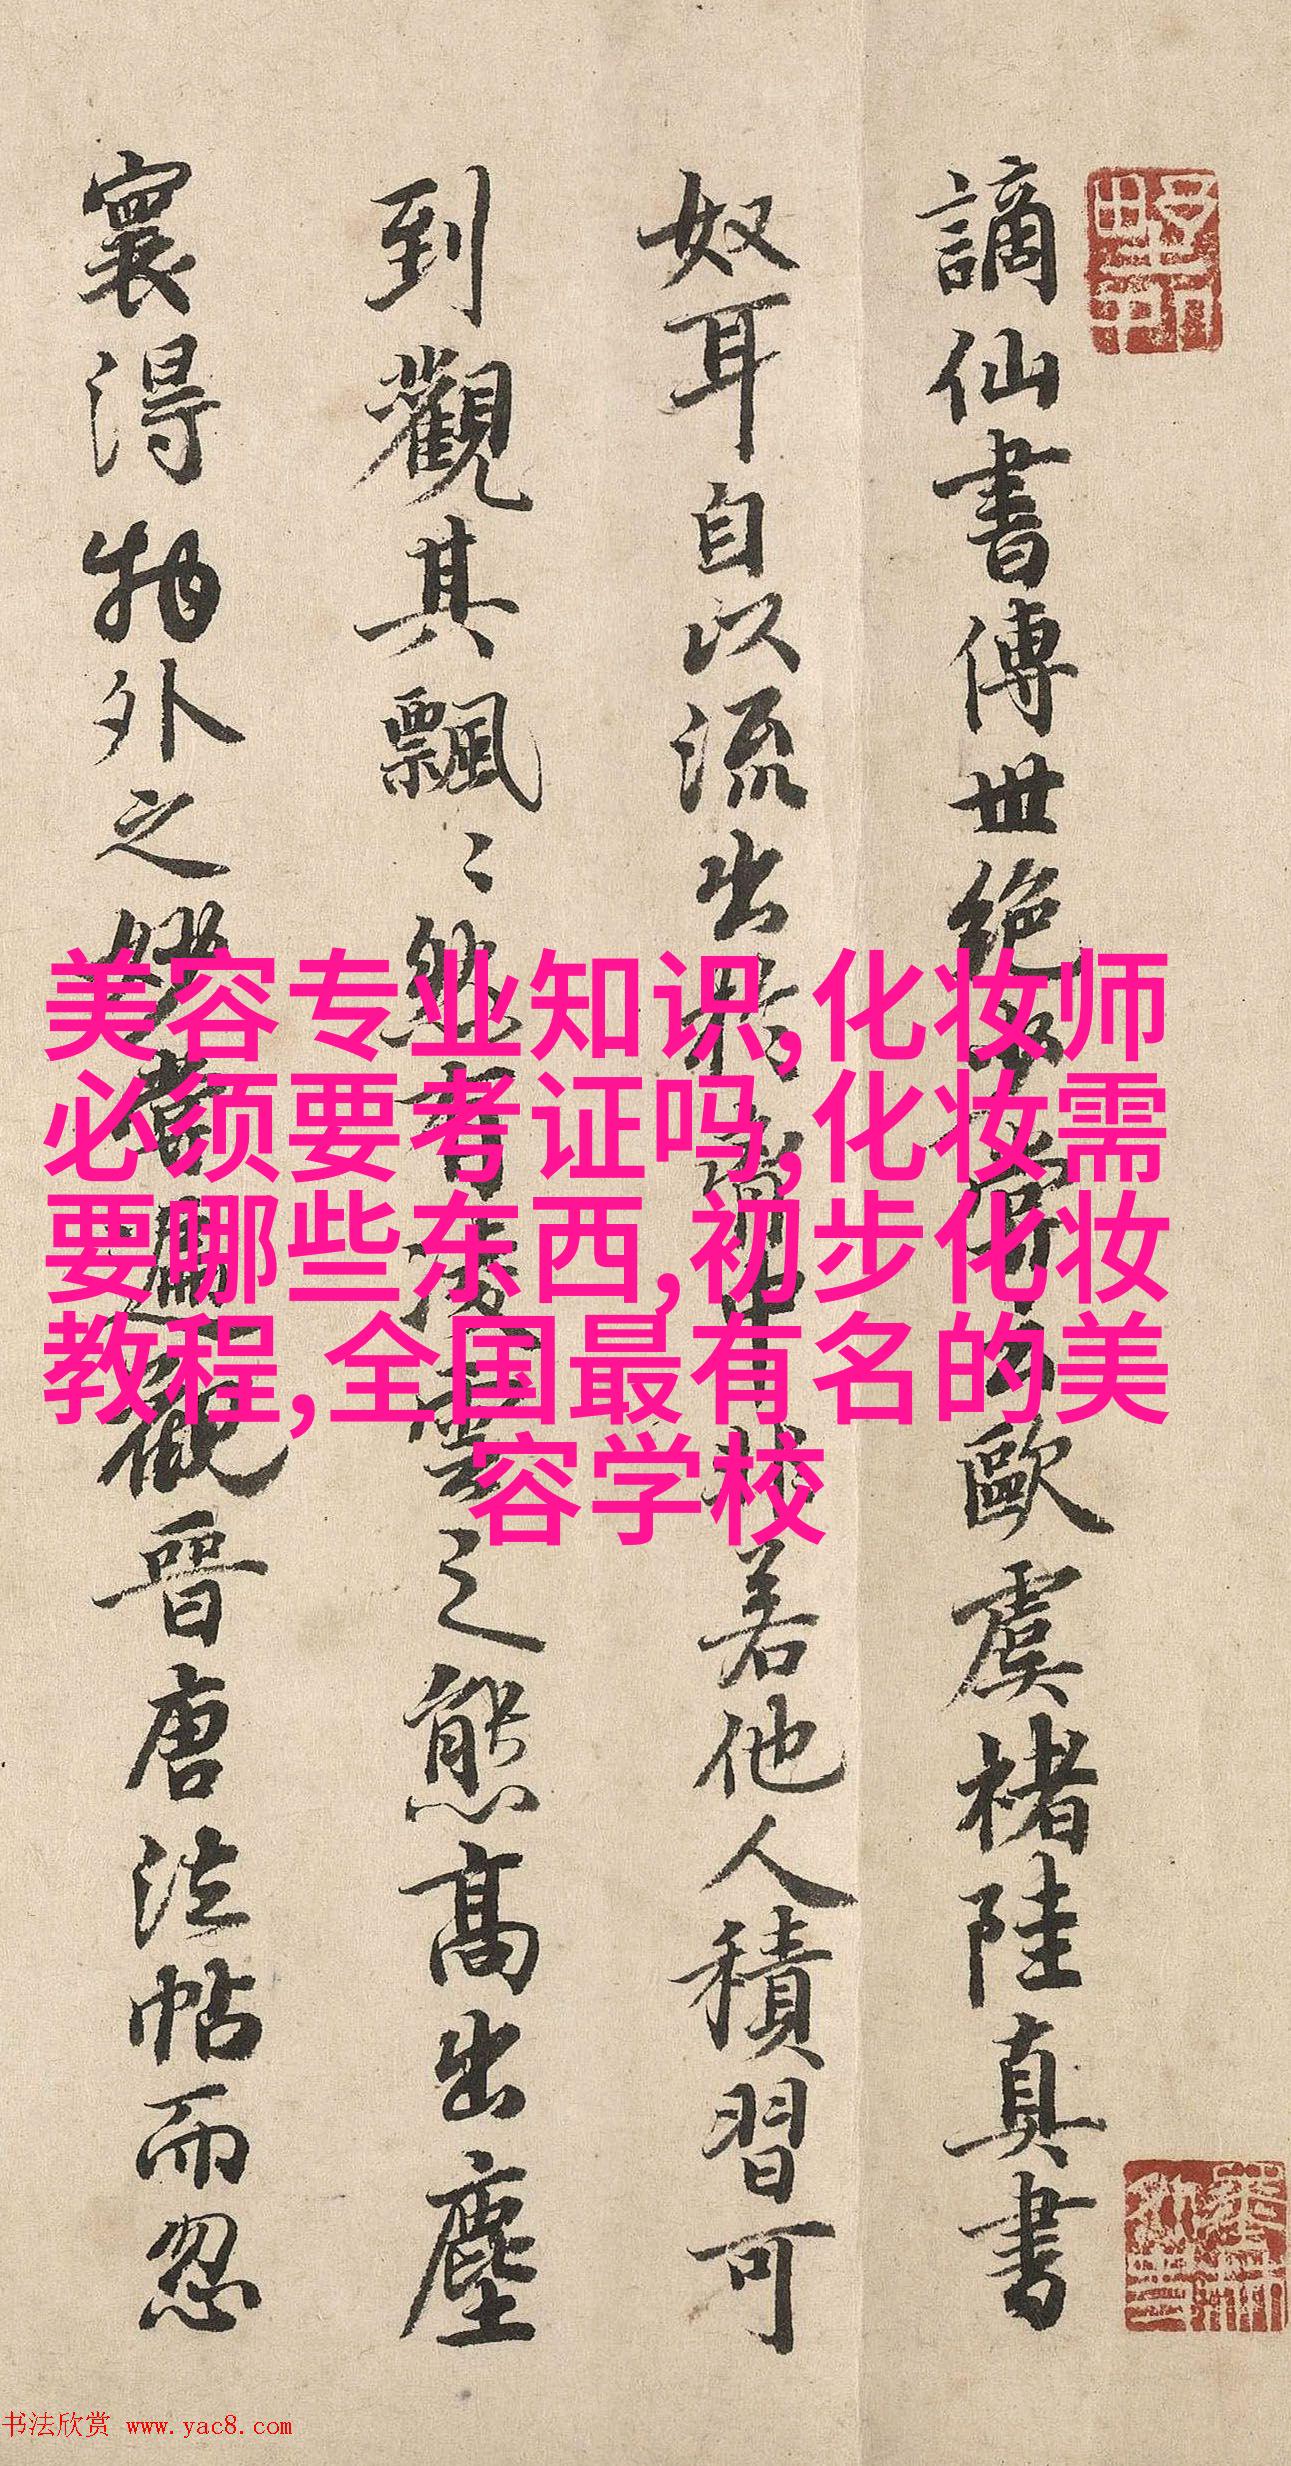 謫仙書傳世絕
歐虞褚陸真書
奴耳自以流出
若他人積習可
到觀其飄〻然有凌雲之態高出塵
寰得物外之妙嘗遍觀晉唐法帖而忽
美容专业知识,化妆师
必须要考证吗,化妆需
要哪些东西,初步化妆
教程,全国最有名的美
容学校
书法欣赏 www.yac8.com